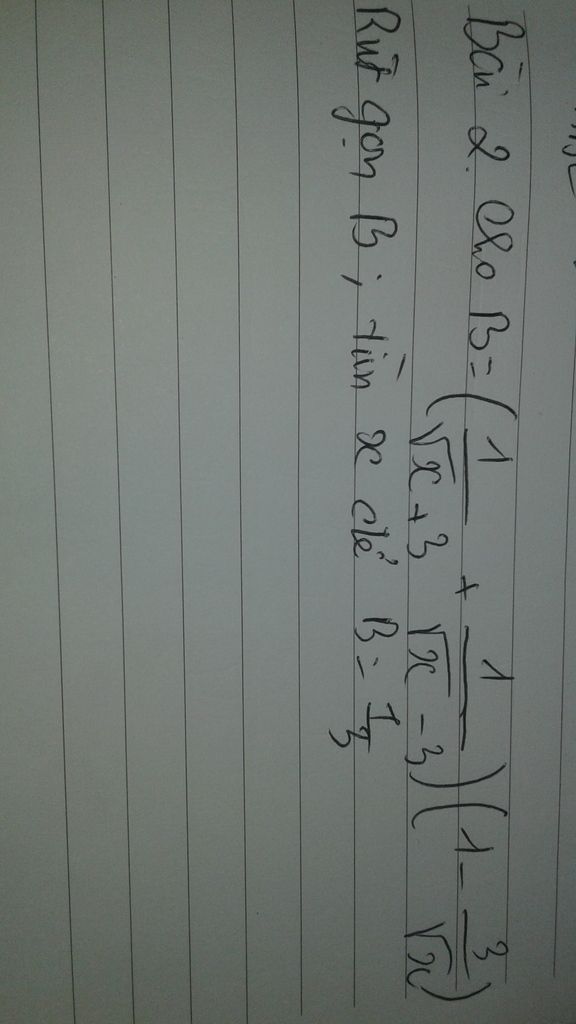 Bài 2. Cho B = (1/(√x + 3) + 1/(√x - 3))(1 - 3/√x)
Rút gọn B; tìm x để B = 1/3